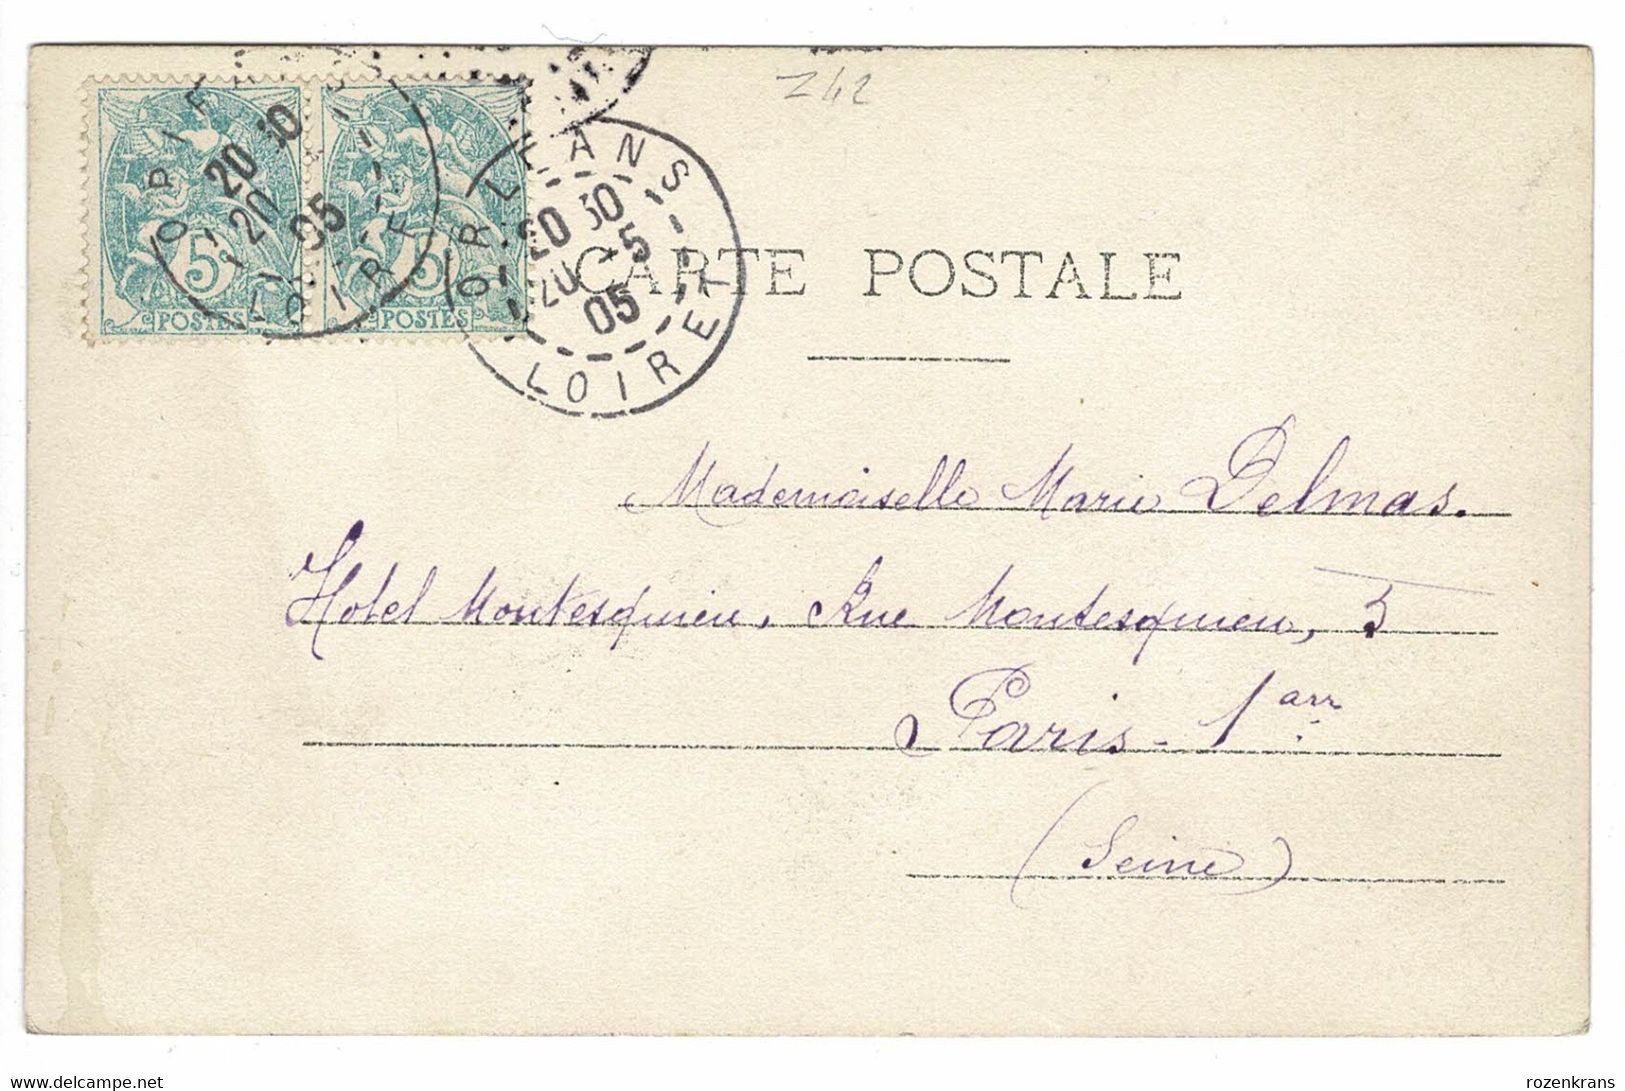 Z42
5 5
POSTES POSTES
ORLEANS
20 30
20 -5
05
LOIRET
ORLE
20 30
20
05
LOIRE
CARTE POSTALE
Mademoiselle Marie Delmas.
Hotel Montesquieu, Rue Montesquieu, 5
Paris - 1arr.
(Seine)
www.delcampe.net
rozenkrans